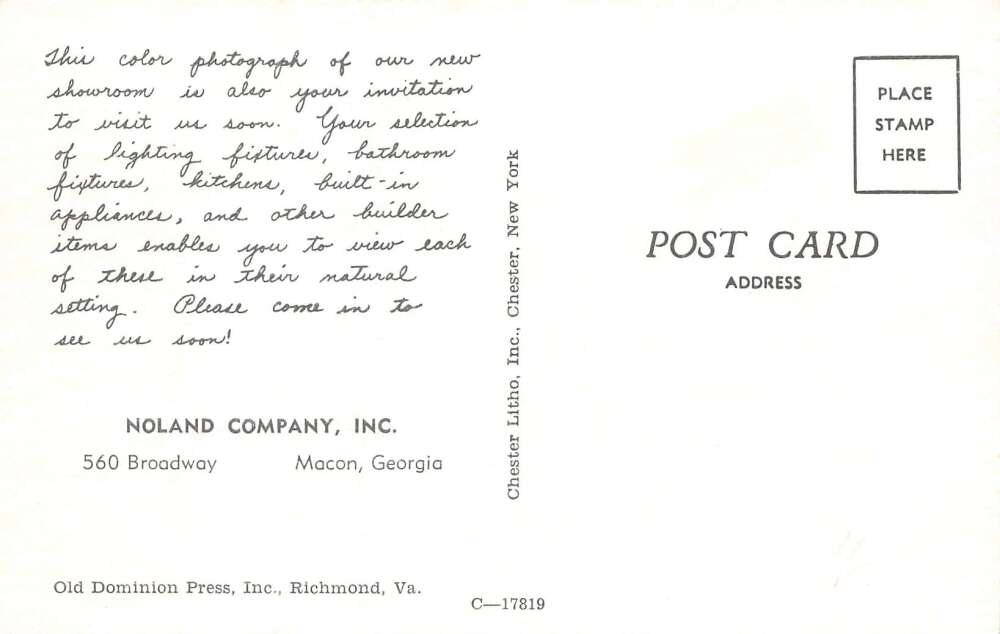 This color photograph of our new
showroom is also your invitation
to visit us soon. Your selection
of lighting fixtures, bathroom
fixtures, kitchens, built-in
appliances, and other builder
items enables you to view each
of these in their natural
setting. Please come in to
see us soon!
NOLAND COMPANY, INC.
560 Broadway Macon, Georgia
Old Dominion Press, Inc., Richmond, Va.
C—17819
Chester Litho, Inc., Chester, New York
PLACE
STAMP
HERE
POST CARD
ADDRESS